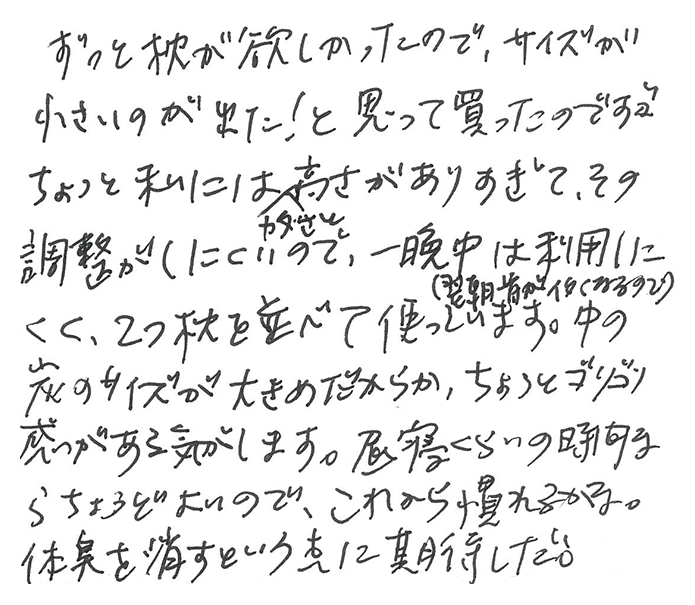 ずっと枕が欲しかったので、サイズが
小さいのが出た!と思って買ったのですが
ちょっと私には高さがありすぎて、その
カタさと
調整がしにくいので、一晩中は利用しに
(翌朝首が痛くなるので)
くく、2つ枕を並べて使っています。中の
炭のサイズが大きめだからか、ちょっとゴリゴリ
感がある気がします。昼寝くらいの時間な
らちょうどよいので、これから慣れるかな。
体臭を消すという点に期待したい。